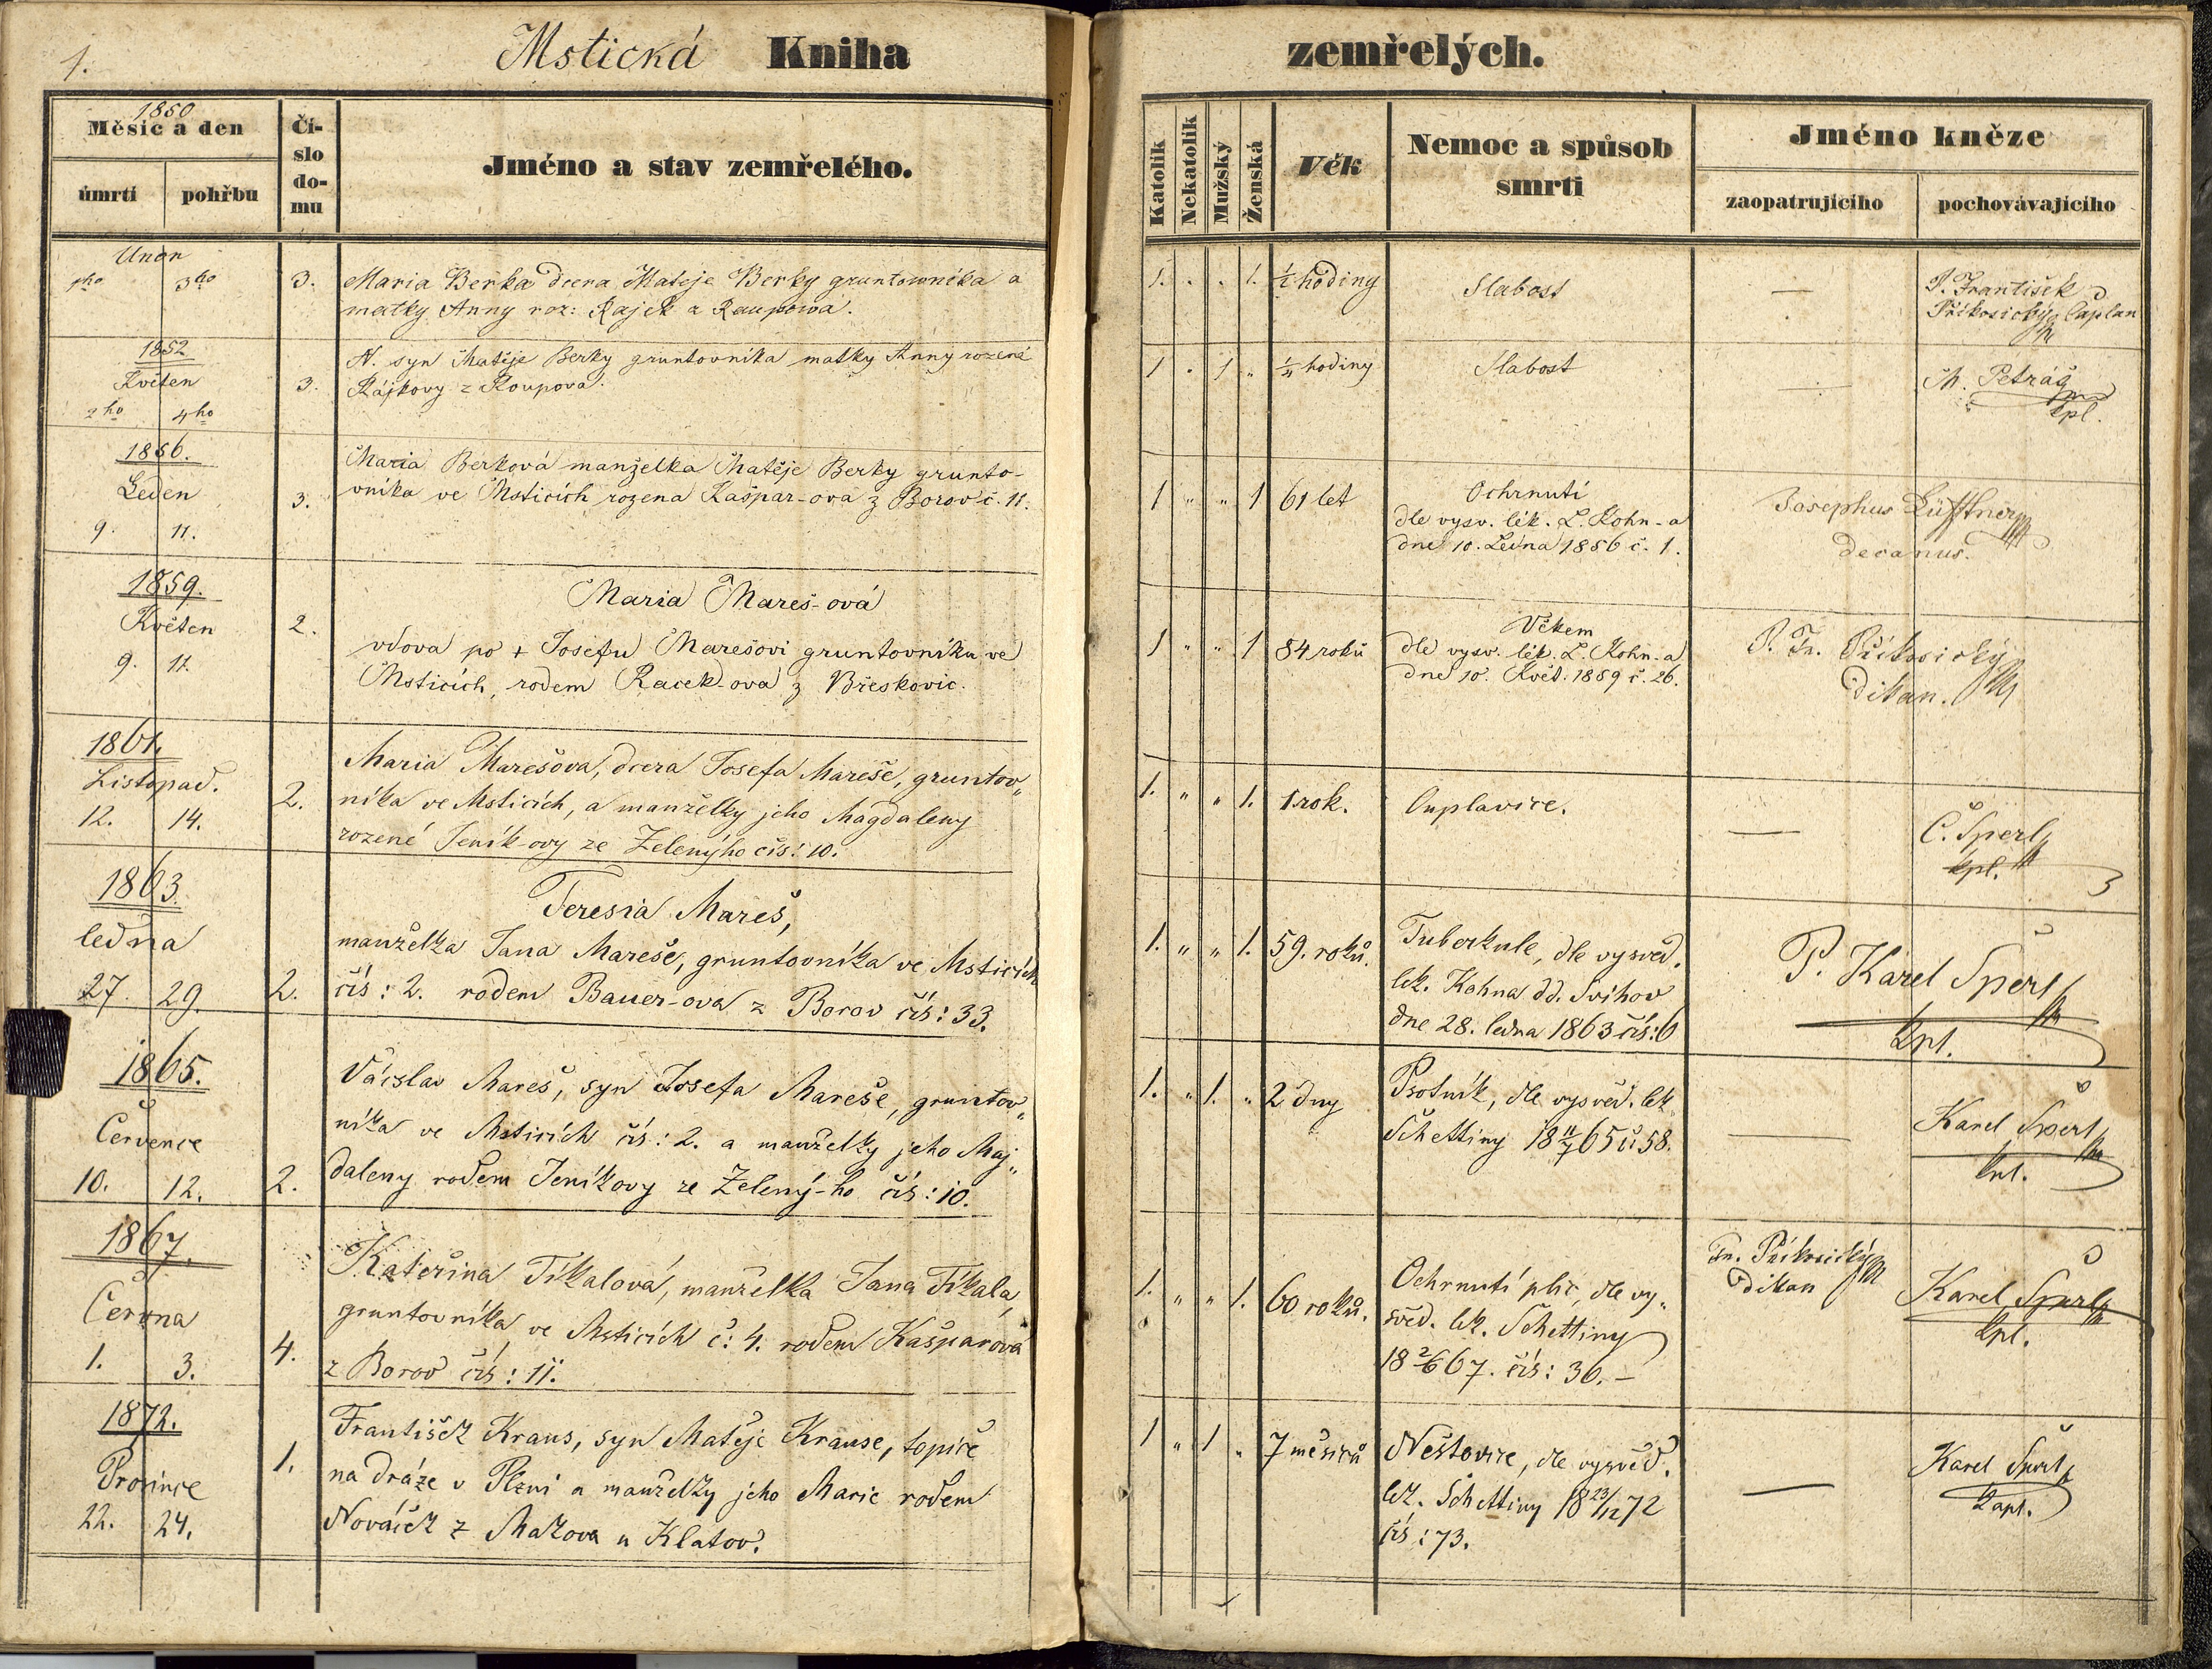 1.
Mstická Kniha zemřelých.
1850
Měsíc a den
úmrtí
pohřbu
Čí-
slo
do-
mu
Jméno a stav zemřelého.
Katolík
Nekatolík
Mužský
Ženská
Věk
Nemoc a spůsob
smrti
Jméno kněze
zaopatrujícího
pochovávajícího
Unor
1ho 3ho 3.
Maria Berka dcera Mateje Berky gruntowníka a
matky Anny roz: Rajek z Raupowa.
1. . . 1. ½ hodiny Slabost — P. František
Příkosický Caplan
1852
Květen
2ho 4ho 3.
N. syn Matěje Berky gruntovníka matky Anny rozená
Rájkovy z Roupova.
1 . 1 „ ¼ hodiny Slabost — M. Petráš
kpl.
1856.
Leden
9. 11. 3.
Maria Berková manželka Matěje Berky grunto-
vníka ve Msticích rozena Kašpar-ova z Borov č. 11.
1 „ „ 1 61 let Ochrnutí
dle vysv. lék. L. Kohn-a
dne 10. Ledna 1856 č. 1.
Josephus Lüfftner
decanus.
1859.
Květen
9. 11. 2.
Maria Mareš-ová
vdova po + Josefu Marešovi gruntovníku ve
Msticích, rodem Racek-ova z Břeskovic.
1 „ „ 1 84 roků Věkem
dle vysv. lék. L. Kohn-a
dne 10. Květ. 1859 č. 26.
P. Fr. Příkosický
Děkan.
1861.
Listopad.
12. 14. 2.
Maria Marešova, dcera Josefa Mareše, gruntov„
níka ve Msticích, a manželky jeho Magdaleny
rozené Jeník-ovy ze Zelenýho čís: 10.
1. „ „ 1. 1 rok. Ouplavice. — Č. Šperl
kpl.
1863.
ledna
27. 29. 2.
Teresia Mareš,
manželka Jana Mareše, gruntovníka ve Msticích
čís: 2. rodem Bauer-ova z Borov čís: 33.
1. „ „ 1. 59. roků. Tuberkule, dle vysvěd.
lék. Kohna dd. Švihov
dne 28. ledna 1863 čís: 6
P. Karel Šperl
kpl.
1865.
Července
10. 12. 2.
Václav Mareš, syn Josefa Mareše, gruntov„
níka ve Msticích čís: 2. a manželky jeho Maj„
daleny rodem Jeníkovy ze Zelený-ho čís: 10.
1. „ 1. „ 2 dny Psotník, dle vysvěd. lék.
Schettiny 18 11/7 65 č: 58.
— Karel Šperl
kpl.
1867.
Června
1. 3. 4.
Kateřina Tikalová, manželka Jana Tikala,
gruntovníka ve Msticích č: 4. rodem Kašparova
z Borov čís: 11.
1. „ „ 1. 60 roků. Ochrnutí plic, dle vy„
svěd. lék. Schettiny
18 2/6 67. čís: 36. —
Fr. Příkosický
Děkan
Karel Šperl
kpl.
1872.
Prosince
22. 24. 1.
František Kraus, syn Matěje Krause, topiče
na dráze v Plzni a manželky jeho Marie rodem
Nováček z Makova u Klatov.
1 „ 1 „ 7 měsíců Neštovice, dle vysvěd.
lék. Schettiny 18 23/12 72
čís: 73.
— Karel Šperl
kapl.